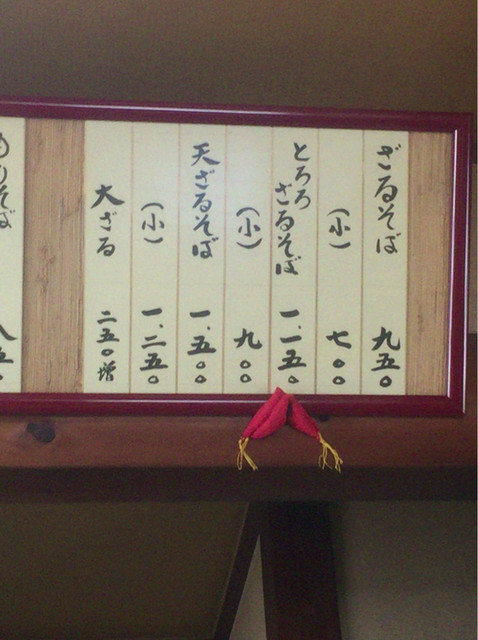 ざるそば 九五〇
(小) 七〇〇
とろろざるそば 一.一五〇
(小) 九〇〇
天ざるそば 一.五〇〇
(小) 一.二五〇
大ざる 二五〇増